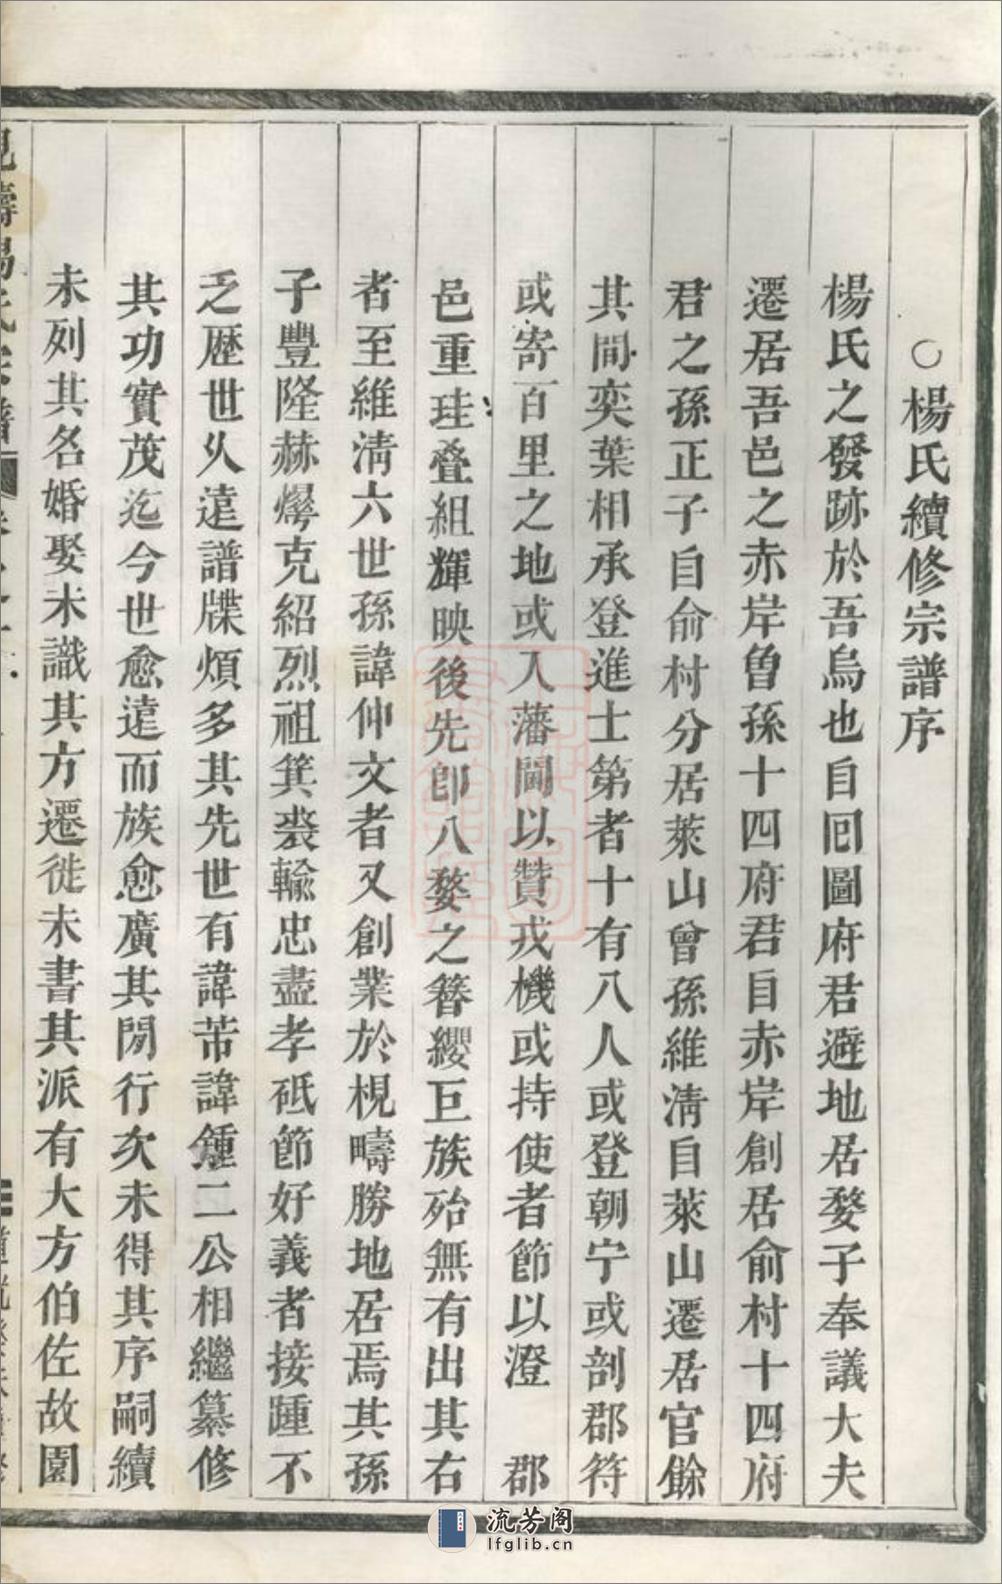 ○楊氏續修宗譜序
楊氏之發跡於吾烏也自囘圖府君避地居婺子奉議大夫
遷居吾邑之赤岸曾孫十四府君自赤岸創居俞村十四府
君之孫正子自俞村分居萊山曾孫維淸自萊山遷居官餘
其間奕葉相承登進士第者十有八人或登朝宁或剖郡符
或寄百里之地或入藩閫以贊戎機或持使者節以澄 郡
邑重珪叠組輝映後先卽八婺之簪纓巨族殆無有出其右
者至維淸六世孫諱仲文者又創業於梘疇勝地居焉其孫
子豐隆赫爀克紹烈祖箕裘輸忠盡孝砥節好義者接踵不
乏歷世乆遠譜牒煩多其先世有諱芾諱鍾二公相繼纂修
其功實茂迄今世愈遠而族愈廣其閒行次未得其序嗣續
未列其名婚娶未識其方遷徙未書其派有大方伯佐故園
流芳阁
lfglib.cn